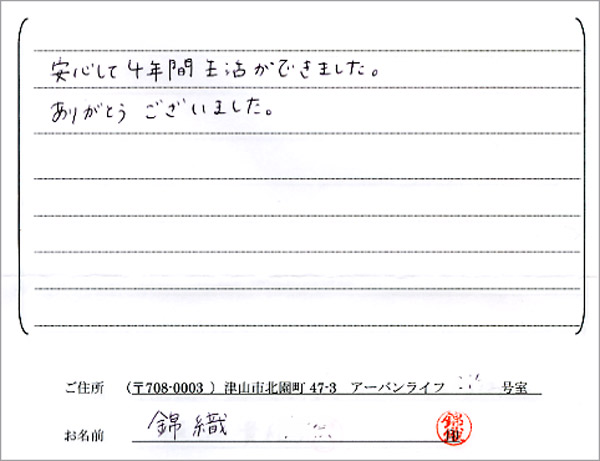 安心して4年間生活ができました。
ありがとうございました。
ご住所 （〒708-0003 ）津山市北園町 47-3 アーバンライフ 号室
お名前 錦織
錦織